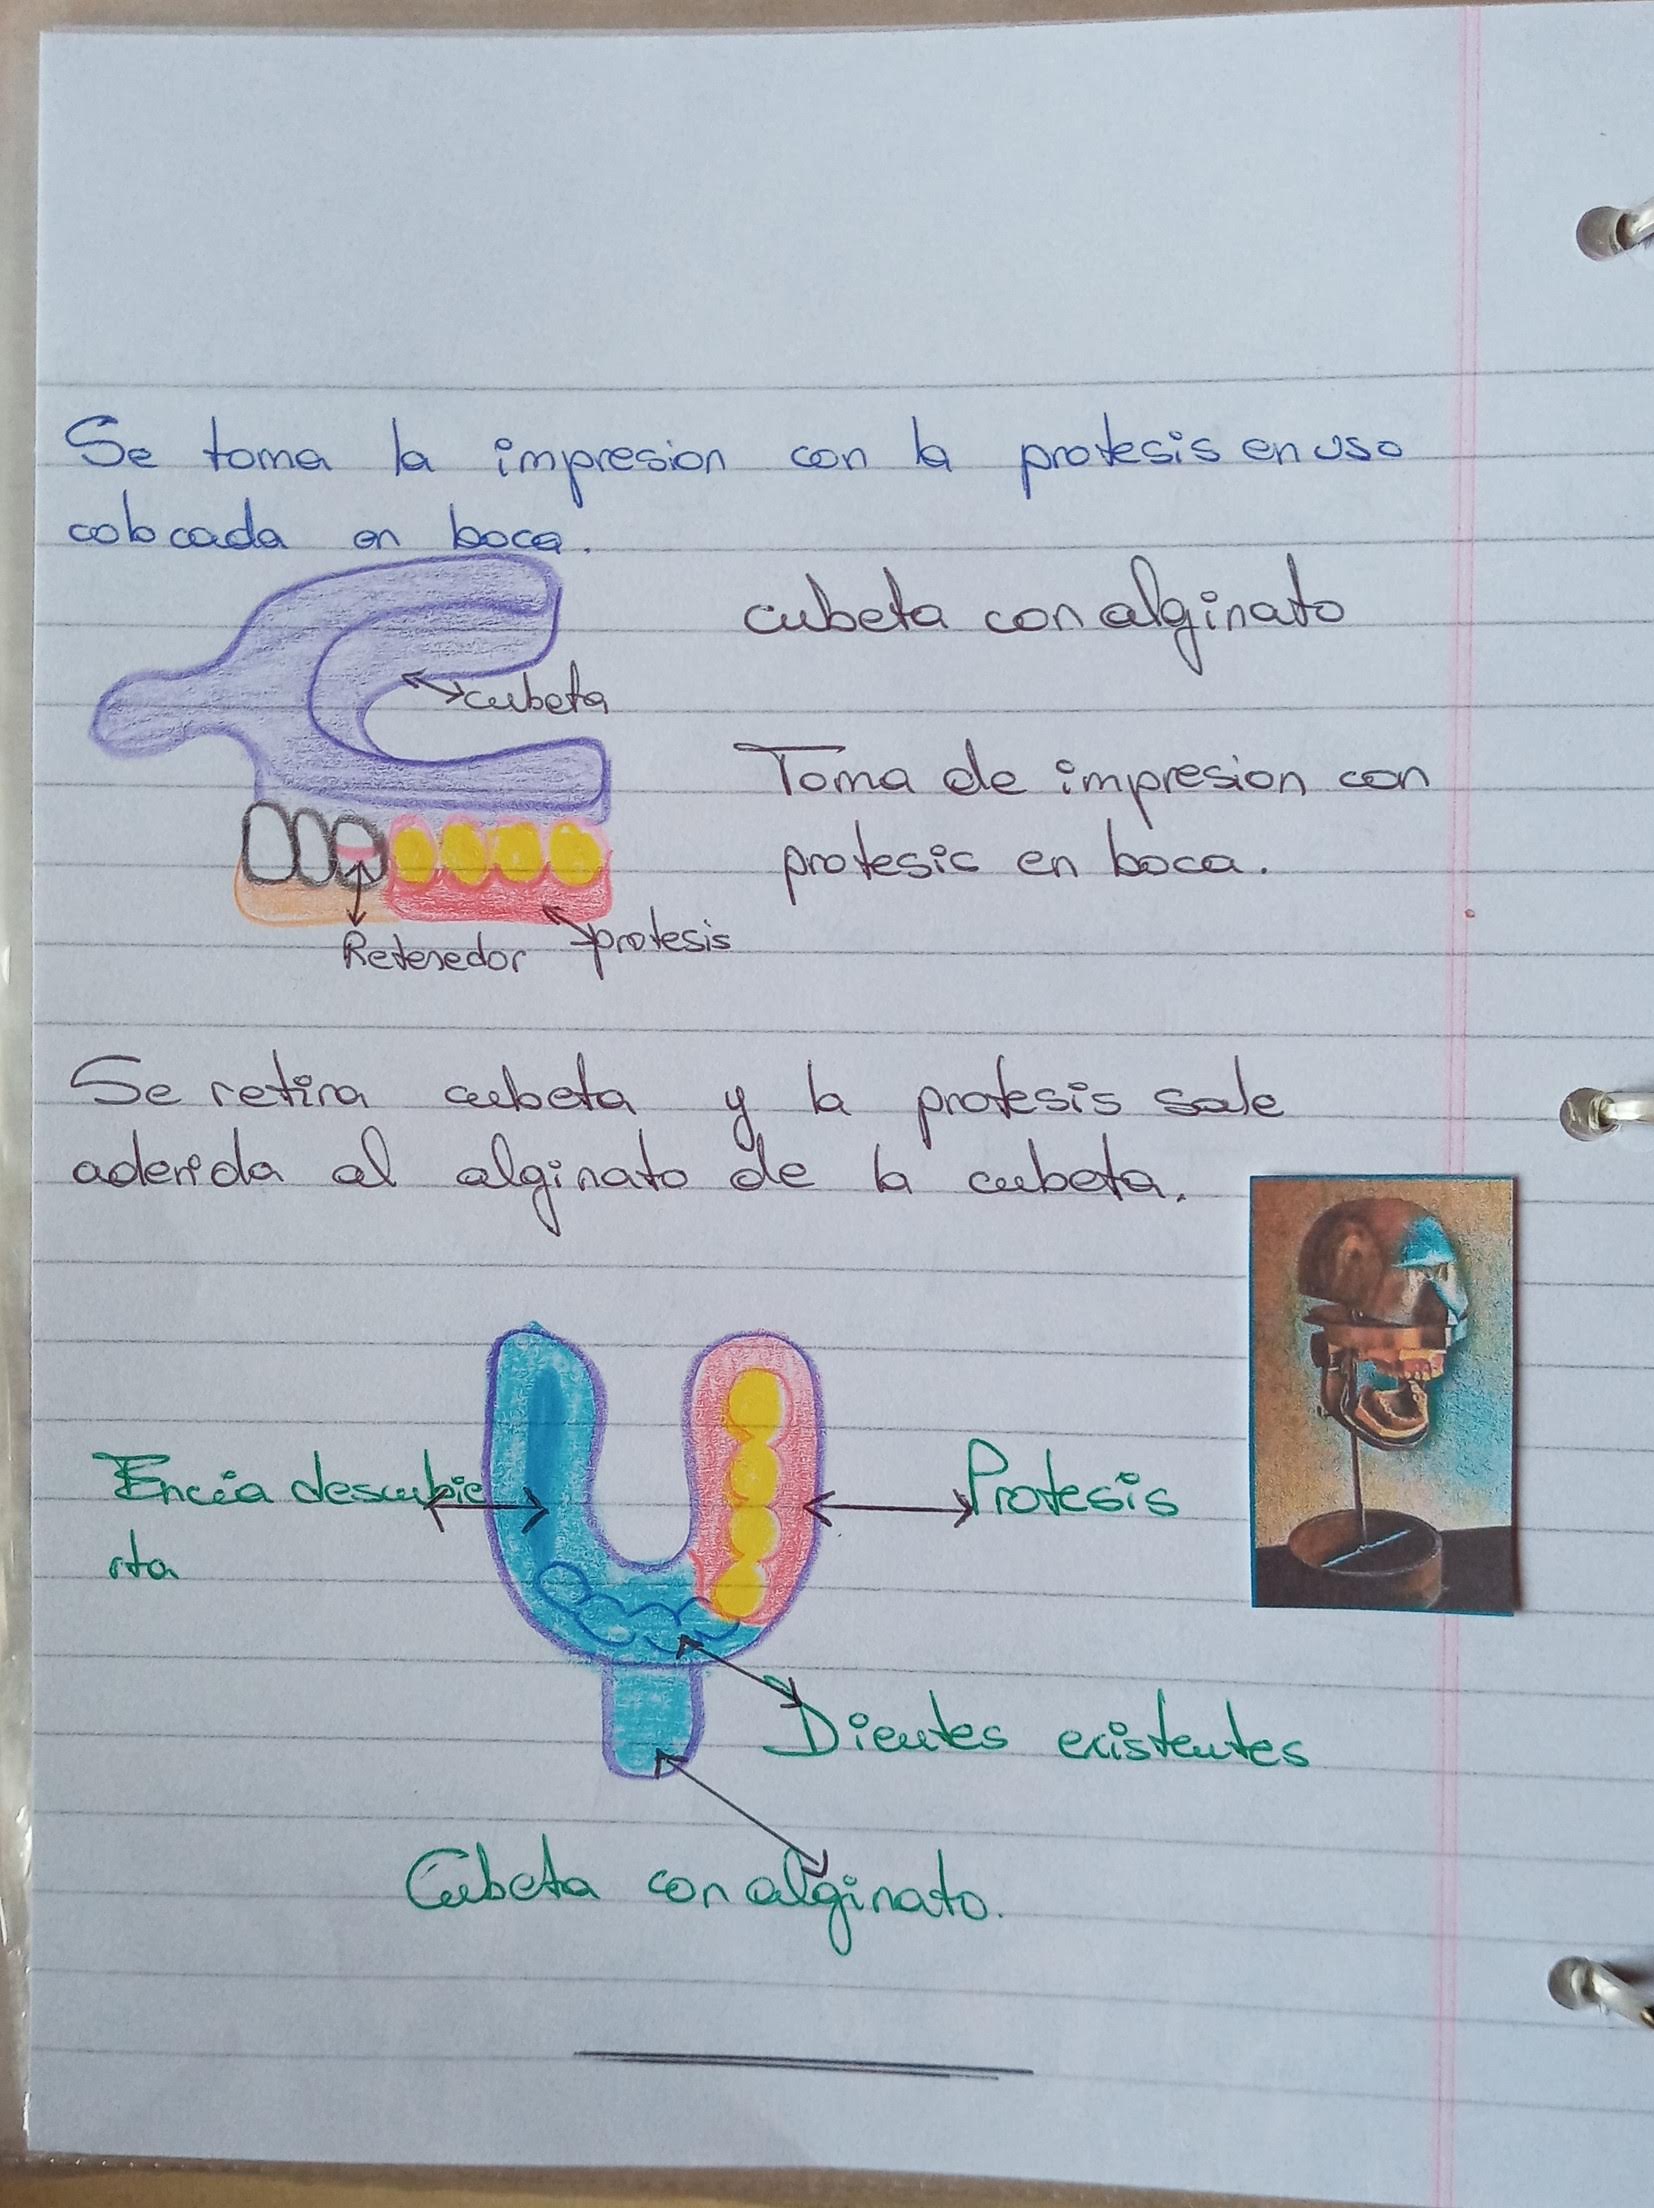 Se toma la impresion con la protesis en uso
colocada en boca.
cubeta con alginato
cubeta
Toma de impresion con
protesis en boca.
Retenedor
protesis
Se retira cubeta y la protesis sale
aderida al alginato de la cubeta.
Encia descubie
rta
Protesis
Dientes existentes
Cubeta con alginato.